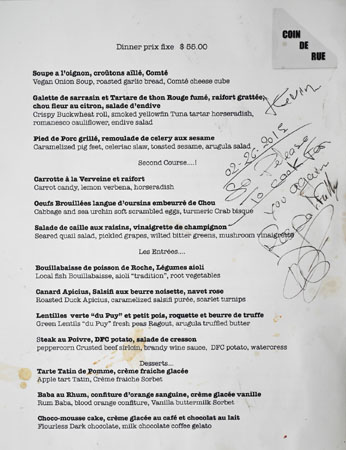 COIN
DE
RUE
Dinner prix fixe $ 55.00
Soupe a l'oignon, croûtons aïllé, Comté
Vegan Onion Soup, roasted garlic bread, Comté cheese cube
Galette de sarrasin et Tartare de thon Rouge fumé, raifort grattée,
chou fleur au citron, salade d'endive
Crispy Buckwheat roll, smoked yellowfin Tuna tartar horseradish,
romanesco cauliflower, endive salad
Pied de Porc grillé, remoulade de celery aux sesame
Caramelized pig feet, celeriac slaw, toasted sesame, arugula salad
Second Course....!
Carrotte à la Verveine et raifort
Carrot candy, lemon verbena, horseradish
Oeufs Brouillées langue d'oursins embeurré de Chou
Cabbage and sea urchin soft scrambled eggs, turmeric Crab bisque
Salade de caille aux raisins, vinaigrette de champignon
Seared quail salad, pickled grapes, wilted bitter greens, mushroom vinaigrette
Les Entrées....
Bouillabaisse de poisson de Roche, Légumes aioli
Local fish Bouillabaisse, aioli "tradition", root vegetables
Canard Apicius, Salsifi aux beurre noisette, navot rose
Roasted Duck Apicius, caramelized salsifi purée, scarlet turnips
Lentilles verte "du Puy" et petit pois, roquette et beurre de truffe
Green Lentils "du Puy" fresh peas Ragout, arugula truffled butter
Steak au Poivre, DFC potato, salade de cresson
peppercorn Crusted beef sirloin, brandy wine sauce, DFC potato, watercress
Desserts...
Tarte Tatin de Pomme, crème fraiche glacée
Apple tart Tatin, Crème fraiche Sorbet
Baba au Rhum, confiture d'orange sanguine, crème glacée vanille
Rum Baba, blood orange confiture, Vanilla buttermilk Sorbet
Choco-mousse cake, crème glacée au café et chocolat au lait
Flourless Dark chocolate, milk chocolate coffee gelato
Kevin
02-26-2013
So Please
To cook For
you again